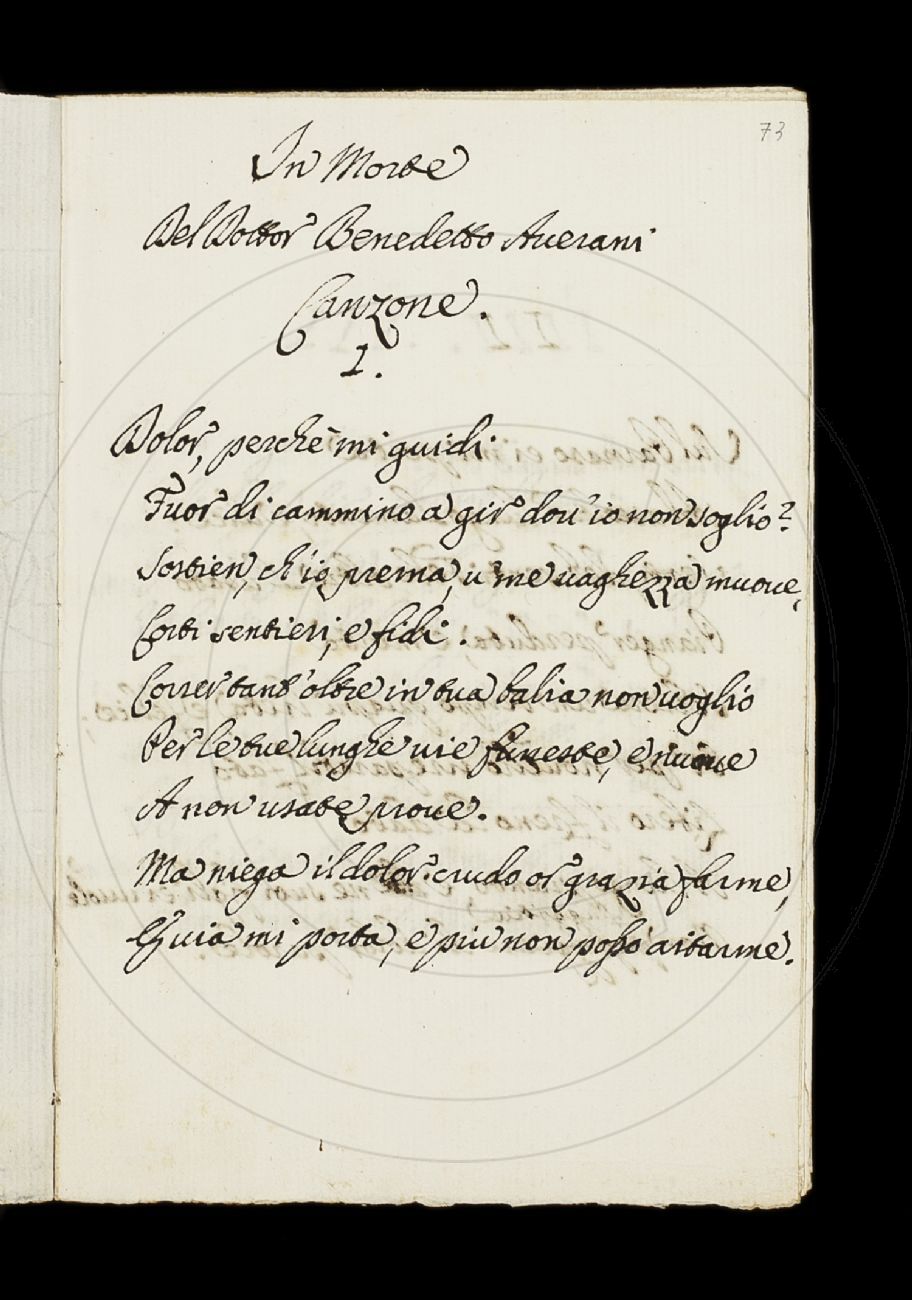 73
In Morte
Del Dottor Benedetto Averani
Canzone.
1.
Dolor, perchè mi guidi
Fuor di cammino a gir dou' io non soglio?
Sostien, ch' io prema, u' me uaghezza muoue,
Corti sentieri, e fidi.
Correr tant' oltre in tua balia non uoglio
Per le tue lunghe uie funeste, e nuoue
A non usate proue.
Ma niega il dolor crudo or grazia farme,
E uia mi porta, e più non posso aitarme.